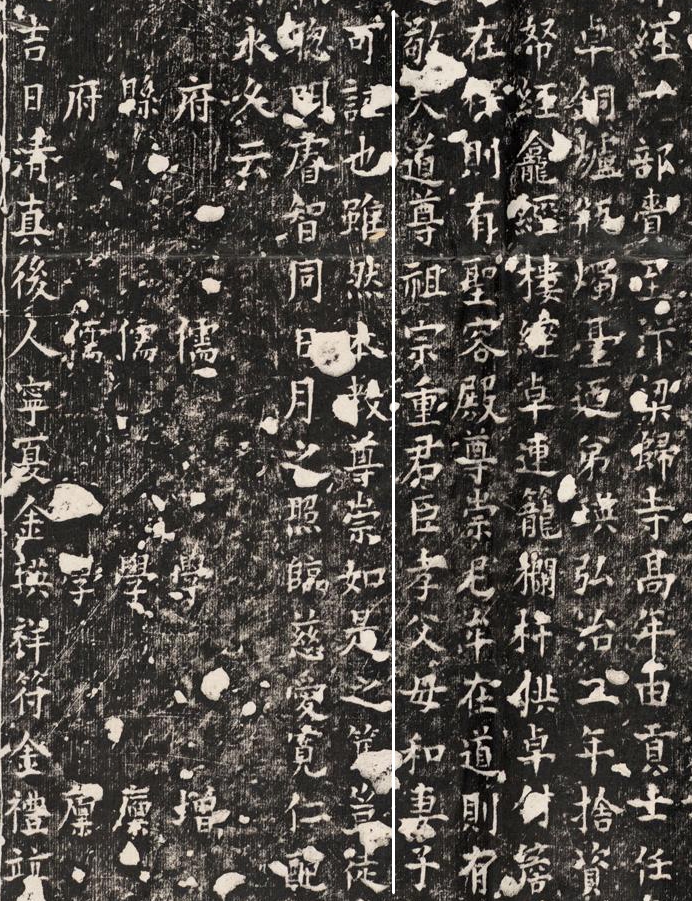 經一部賫至汴梁歸寺高年由貢士任
卓銅爐瓶燭臺迺弟瑛弘治二年捨資
帑經龕經樓經卓連籠欄杆供卓付簷
在儒則有聖容殿尊崇尼牟在道則有
敬天道尊祖宗重君臣孝父母和妻子
可誣也雖然本教尊崇如是之篤豈徒
聰明睿智同日月之照臨慈愛寬仁配
永久云
府儒學增
縣儒學廩
府儒學廩
吉日清真後人寧夏金瑛祥符金禮竝